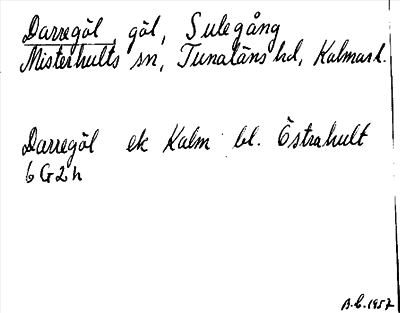 Darregöl, göl, Sulegång
Misterhults sn, Tunaläns hd, Kalmar l.
Darregöl ek Kalm bl. Östrahult
6 G 2 h
A.C. 1957